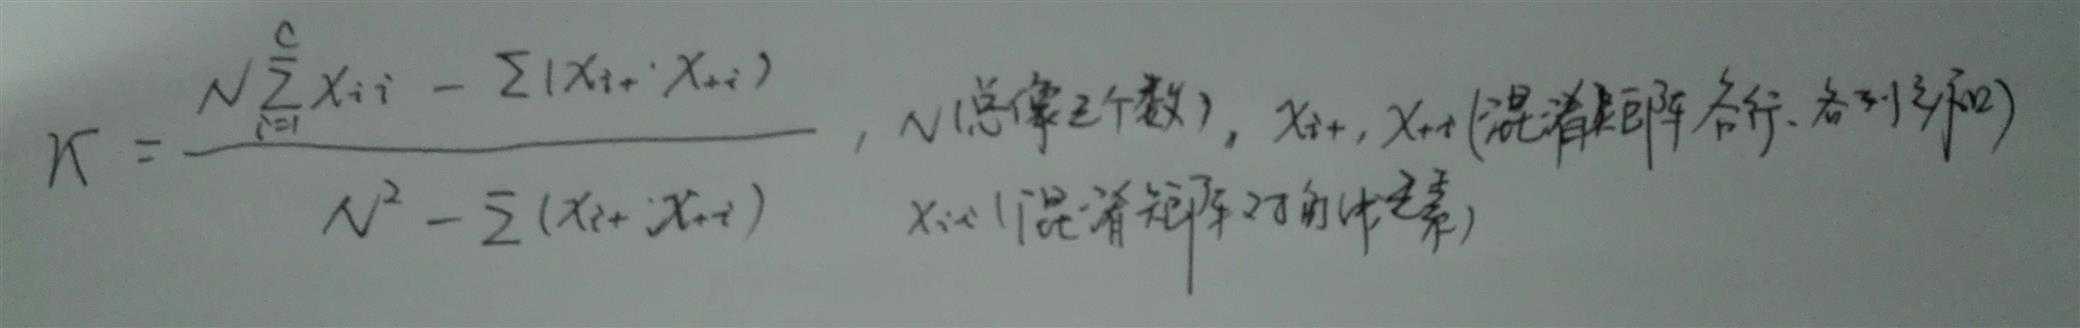 K = \frac{N\sum_{i=1}^{C} X_{ii} - \sum(X_{i+} \cdot X_{+i})}{N^2 - \sum(X_{i+} \cdot X_{+i})} , N(总像元个数), X_{i+}, X_{+i}(混淆矩阵各行、各列总和)
X_{ii}(混淆矩阵对角线元素)